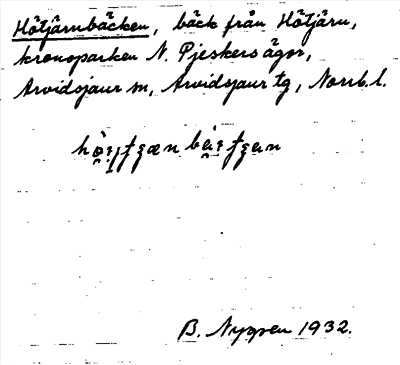 Hötjärnbäcken, bäck från Hötjärn,
kronoparken N. Pjeskers ägor,
Arvidsjaur sn, Arvidsjaur tg, Norrb. l.
B. Nygren 1932.